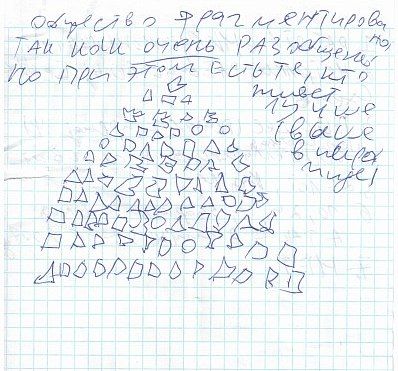 общество фрагментирова
но,
так как очень разобщены
но при этом есть те, кто
живет
лучше
(выше
в пира
миде)